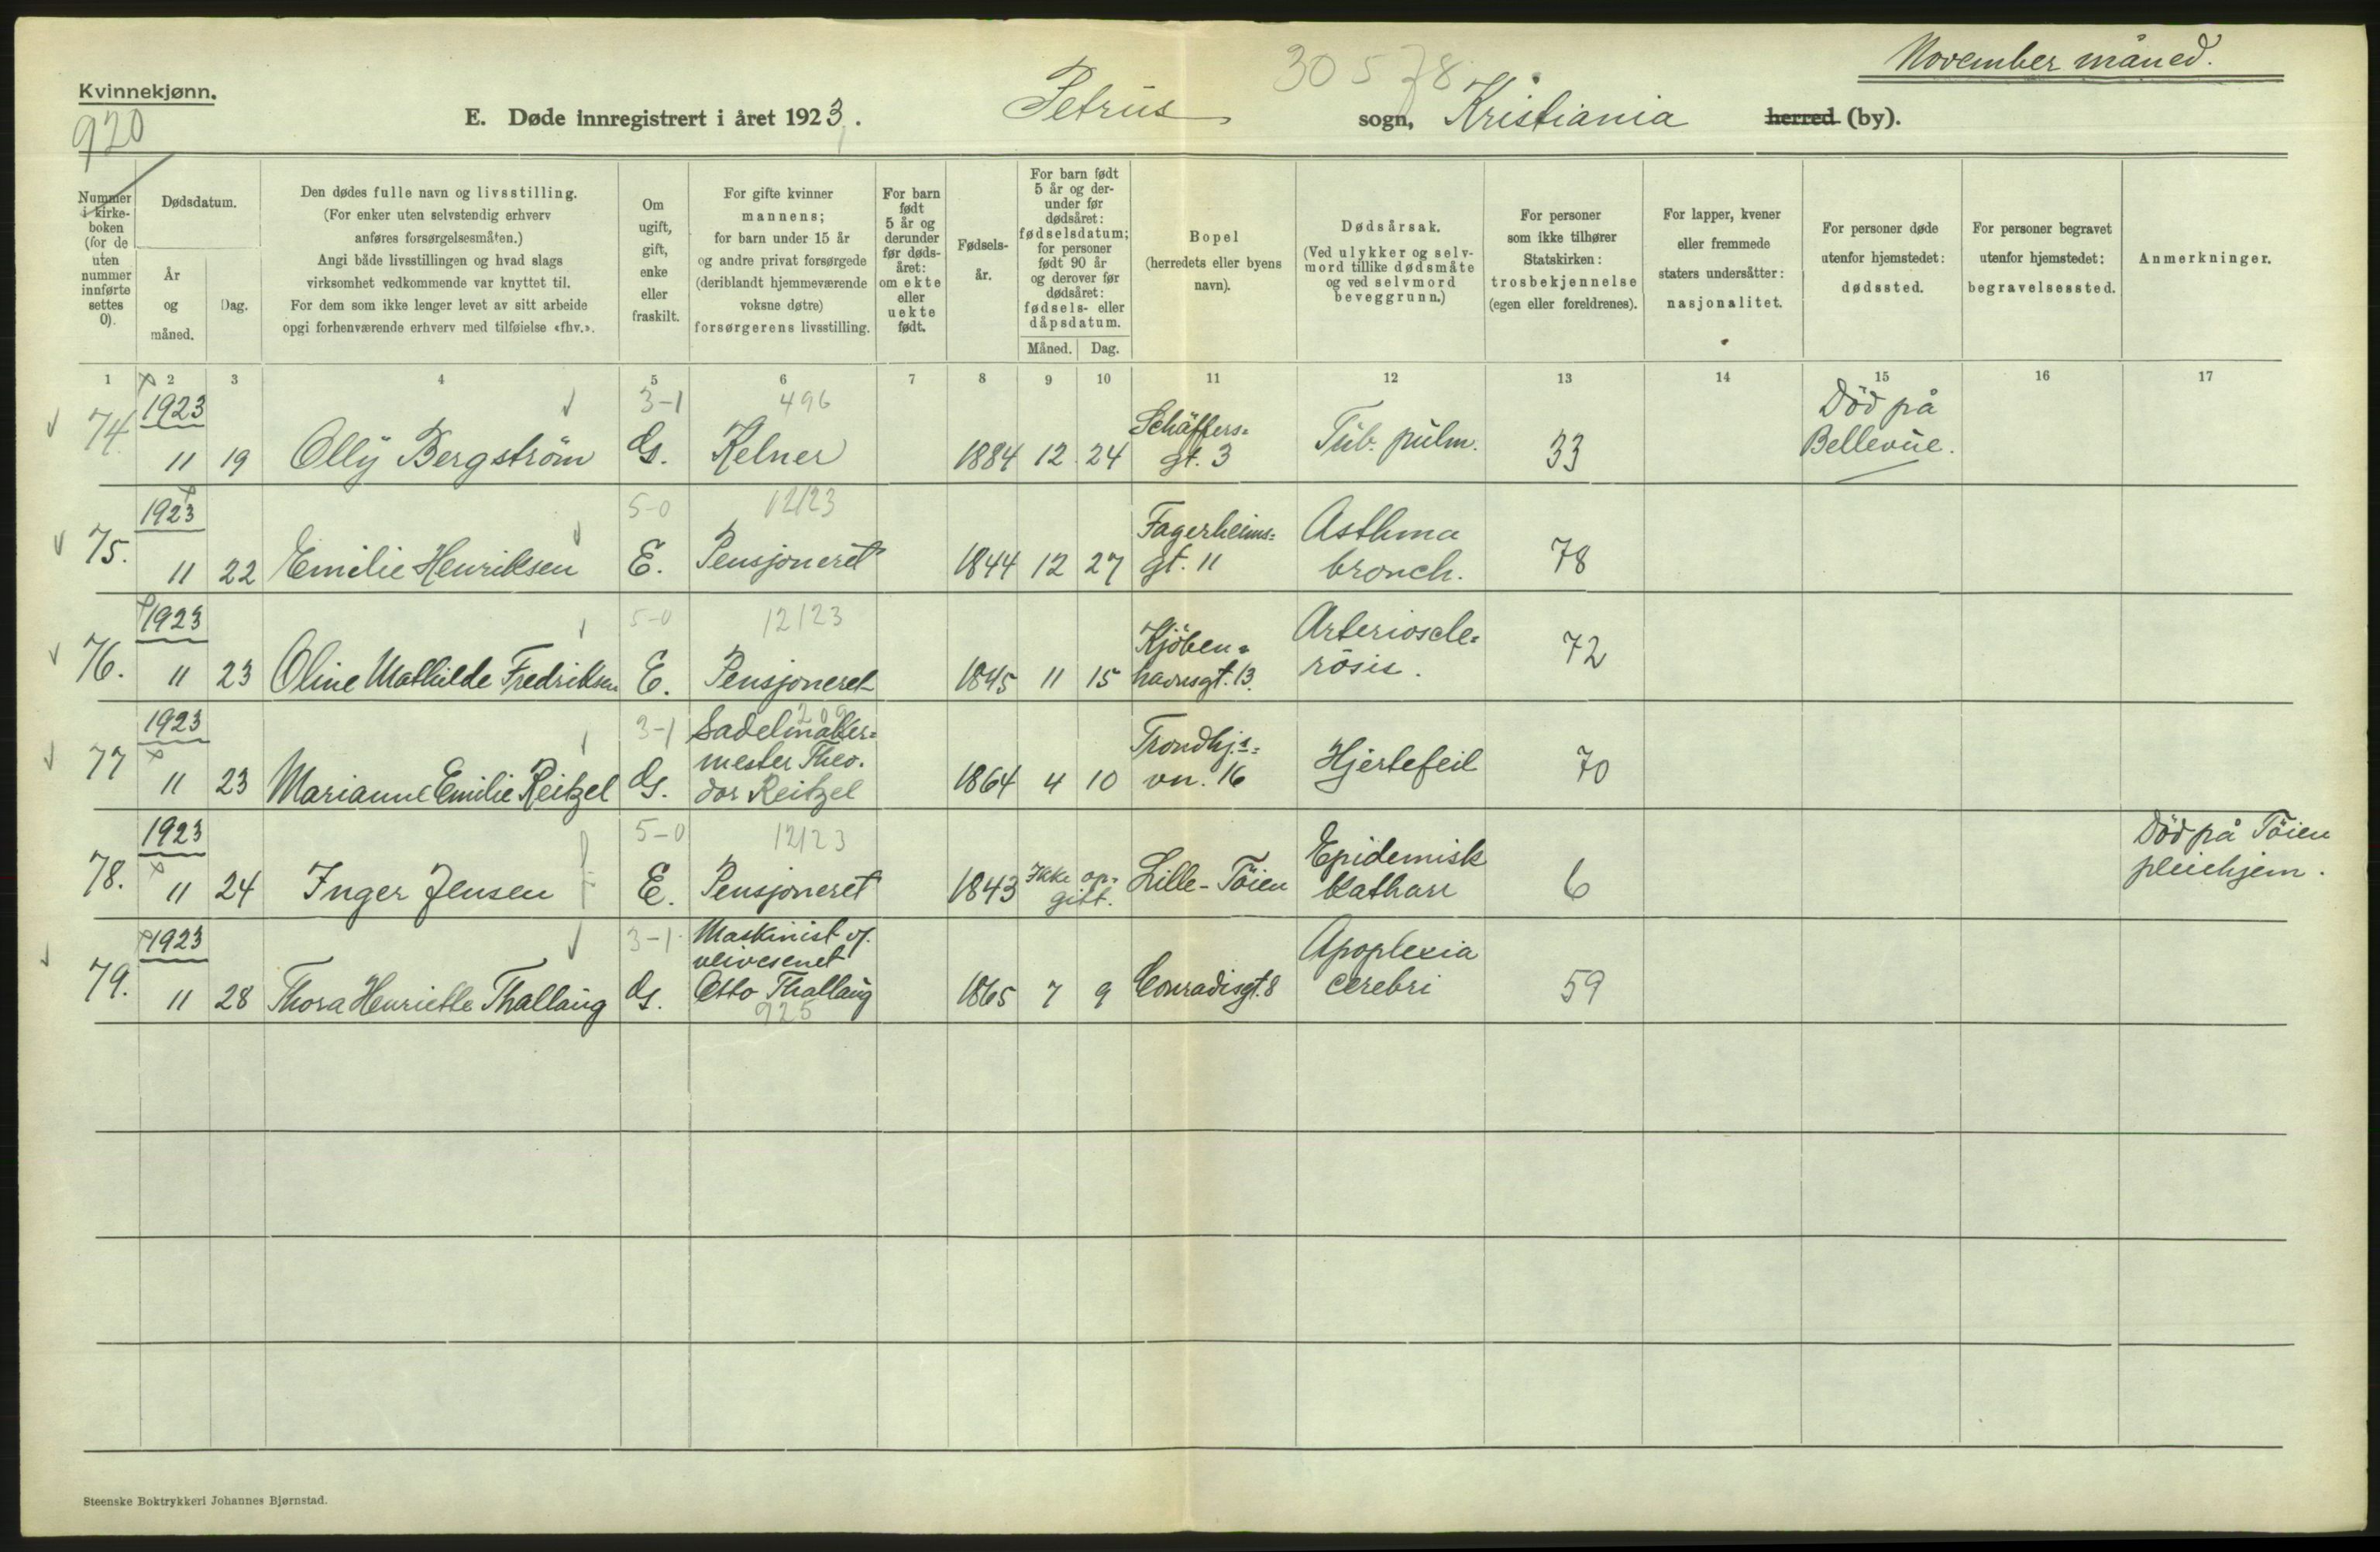 November måned.
Kvinnekjønn.
30 578
920
E. Døde innregistrert i året 1923. Petrus sogn, Kristiania herred (by).
Nummer i kirke-boken (for de uten nummer innførte settes 0).
Dødsdatum.
År og måned.
Dag.
Den dødes fulle navn og livsstilling.
(For enker uten selvstendig erhverv
anføres forsørgelsesmåten.)
Angi både livsstillingen og hvad slags
virksomhet vedkommende var knyttet til.
For dem som ikke lenger levet av sitt arbeide
opgi forhenværende erhverv med tilføielse «fhv.».
Om ugift, gift, enke eller fraskilt.
For gifte kvinner
mannens;
for barn under 15 år
og andre privat forsørgede
(deriblandt hjemmeværende
voksne døtre)
forsørgerens livsstilling.
For barn født 5 år og derunder før døds-året: om ekte eller uekte født.
Fødsels-år.
For barn født 5 år og der-under før dødsåret: fødselsdatum; for personer født 90 år og derover før dødsåret: fødsels- eller dåpsdatum.
Måned. Dag.
Bopel
(herredets eller byens
navn).
Dødsårsak.
(Ved ulykker og selv-
mord tillike dødsmåte
og ved selvmord
beveggrunn.)
For personer
som ikke tilhører
Statskirken:
trosbekjennelse
(egen eller foreldrenes).
For lapper, kvener
eller fremmede
staters undersåtter:
nasjonalitet.
For personer døde
utenfor hjemstedet:
dødssted.
For personer begravet
utenfor hjemstedet:
begravelsessted.
Anmerkninger.
1 2 3 4 5 6 7 8 9 10 11 12 13 14 15 16 17
74. 1923 11 19 Olly Bergström 3-1 G. 496 Kelner 1884 12 24 Schäffers= gt. 3 Tub. pulm. 33 Död på Bellevue.
75. 1923 11 22 Emilie Henriksen 5-0 E. 12/23 Pensjoneret 1844 12 27 Fagerheims= gt. 11 Asthma bronch. 78
76. 1923 11 23 Oline Mathilde Fredriksen 5-0 E. 12/23 Pensjoneret 1845 11 15 Kjöben= havnsgt. 13. Arterioscle= rosis. 72
77 1923 11 23 Marianne Emilie Reitzel 3-1 G. 209 Sadelmaker= mester Theo. dor Reitzel 1864 4 10 Trondhj.s= vn. 16 Hjertefeil 70
78. 1923 11 24 Inger Jensen 5-0 E. 12/23 Pensjoneret 1843 Ikke op= gitt. Lille-Töien Epidemisk Katharr 6 Död på Töien pleiehjem.
79. 1923 11 28 Thora Henriette Thallaug 3-1 G. Maskinist v/. veivesenet Otto Thallaug 925 1865 7 9 Conradisgt. 8 Apoplexia cerebri 59
Steenske Boktrykkeri Johannes Bjørnstad.